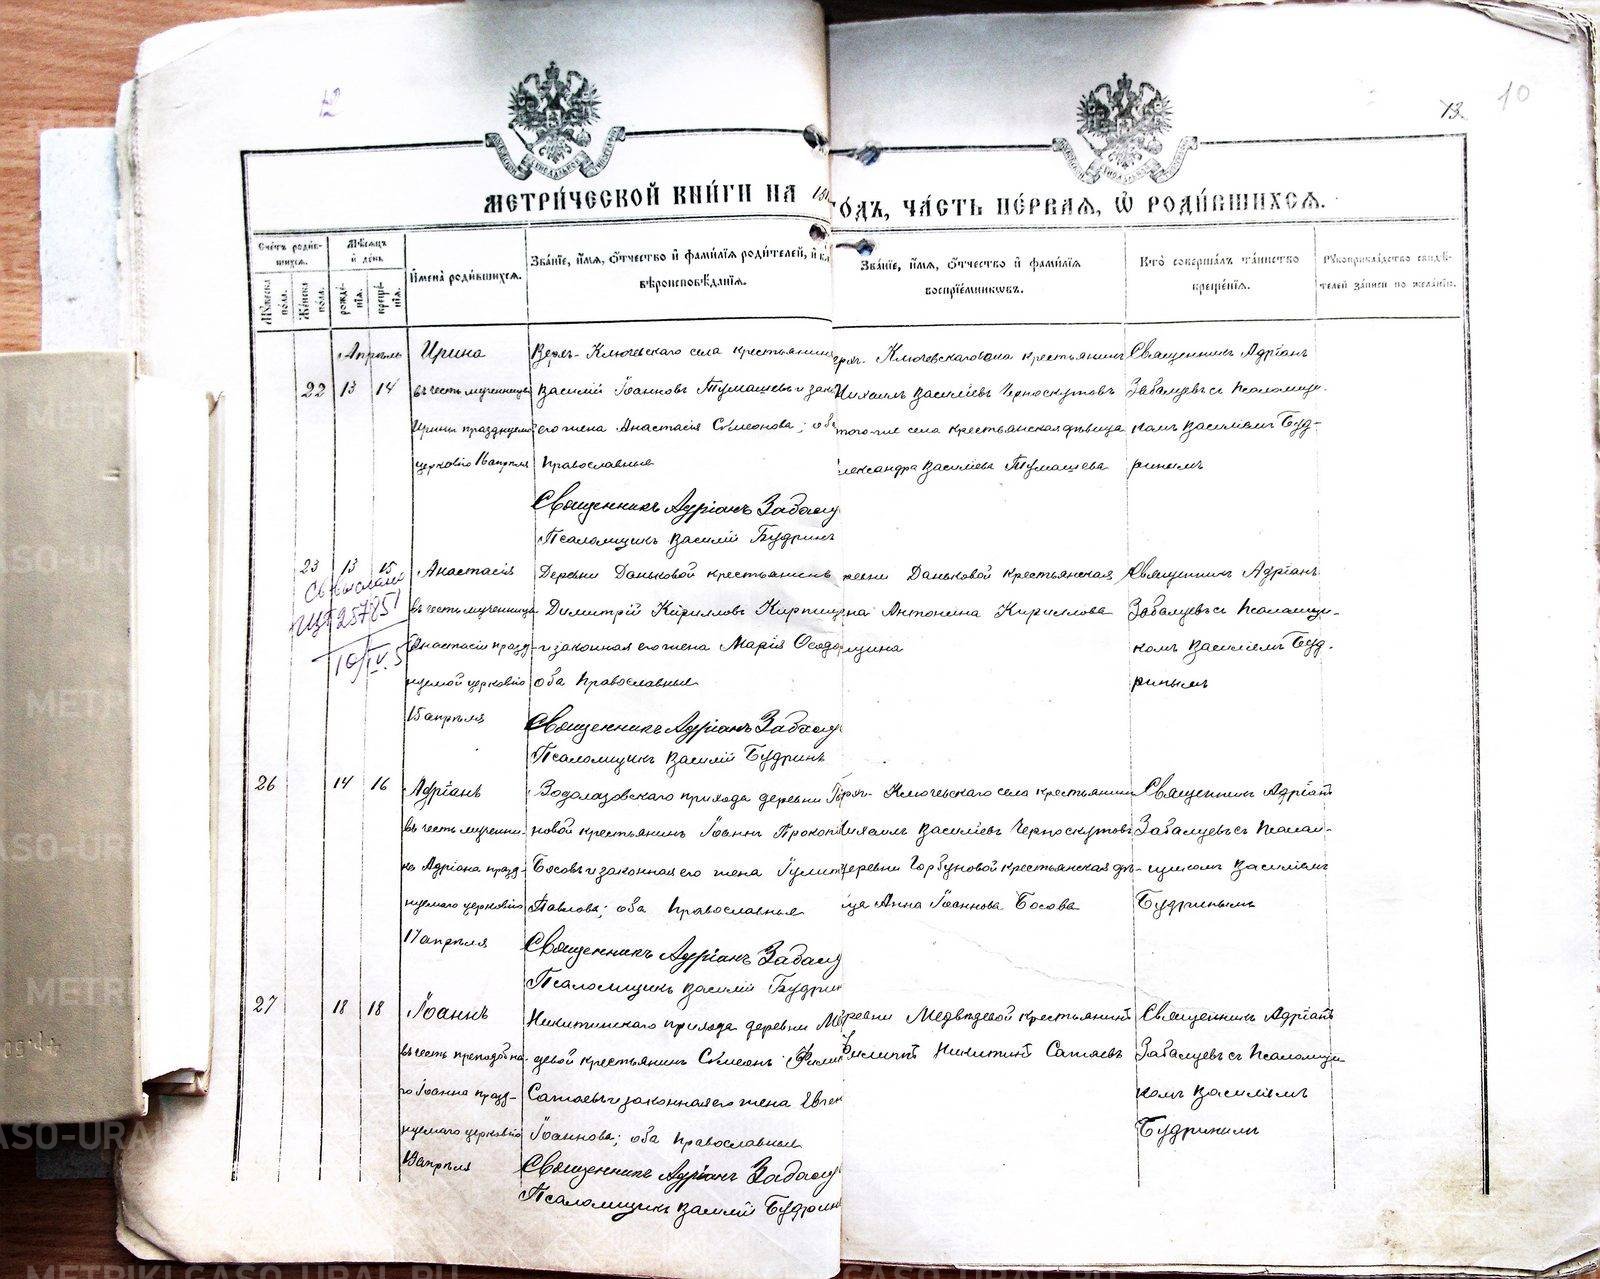 12
13.
10
МЕТРИ́ЧЕСКОЙ КНИ́ГИ НА
ГО́ДЪ, ЧА́СТЬ ПЕ́РВАЯ, Ѡ҆ РОДИ́ВШИХСЯ.
Счетъ роди́вшихся.
Мѣсяцъ и день
Имена роди́вшихся.
Зва́нїе, и́мя, о́тчество и фами́лїя роди́телей, и
вѣроисповѣ́данїя.
Зва́нїе, и́мя, о́тчество и фами́лїя
воспрїе́мниковъ.
Кто́ соверша́лъ та́инство
креще́нїя.
Рукоприкла́дство свидѣ́-
телей за́писи по жела́нїю.
Му́жеска по́ла.
Же́нска пола.
рожде́нїя.
креще́нїя.
Апрѣль
22 13 14
Ирина
въ честь мученицы
Ирины празднуемой
церковію 16 апрѣля
Верх- Ключевскаго села крестьянинъ
Василій Іоанновъ Тумашевъ и зак
его жена Анастасія Сѵмеонова; оба
православные
Священникъ Адріанъ Забал
Псаломщикъ Василій Будринъ
Ключевскаго села крестьянинъ
Михаилъ Василіевъ Черноскутовъ
того-же села крестьянская дѣвица
Александра Василіева Тумашева
Священникъ Адріанъ
Забалуевъ съ псаломщи-
комъ Василіемъ Буд-
ринымъ
23 13 15
257851
Анастасія
въ честь мученицы
Анастасіи празд-
нуемой церковію
15 апрѣля
Деревни Даньковой крестьянинъ
Димитрій Кирилловъ Кирпи
и законная его жена Марія Ѳеодо
оба православные
Священникъ Адріанъ Забалу
Псаломщикъ Василій Будринъ
Даньковой крестьянская
Антонина Кириллова
Священникъ Адріанъ
Забалуевъ съ псаломщи-
комъ Василіемъ Буд-
ринымъ
26 14 16
Адріанъ
въ честь мучени-
ка Адріана празд-
нуемаго церковію
17 апрѣля
Водолазовскаго прихода деревни Гор
новой крестьянинъ Іоаннъ Прокопі
Босовъ и законная его жена Іулит
Павлова; оба православные
Священникъ Адріанъ Забалу
Псаломщикъ Василій Будрин
Ключевскаго села крестьянинъ
Михаилъ Василіевъ Черноскутовъ
деревни Горбуновой крестьянская дѣ-
ца Анна Іоаннова Босова
Священникъ Адріанъ
Забалуевъ съ псалом-
щикомъ Василіемъ
Будринымъ
27 18 18
Іоаннъ
въ честь преподобна-
го Іоанна празд-
нуемаго церковію
апрѣля
Никитинскаго прихода деревни Ме
дѣвой крестьянинъ Сѵмеонъ Фили
Сатаевъ и законная его жена Евген
Іоаннова; оба православные
Священникъ Адріанъ Забалу
Псаломщикъ Василій Будрин
Медвѣдевой крестьянинъ
Филиппъ Никитинъ Сатаевъ
Священникъ Адріанъ
Забалуевъ съ псаломщи-
комъ Василіемъ
Будринымъ
METRIKI.GASO-URAL.RU